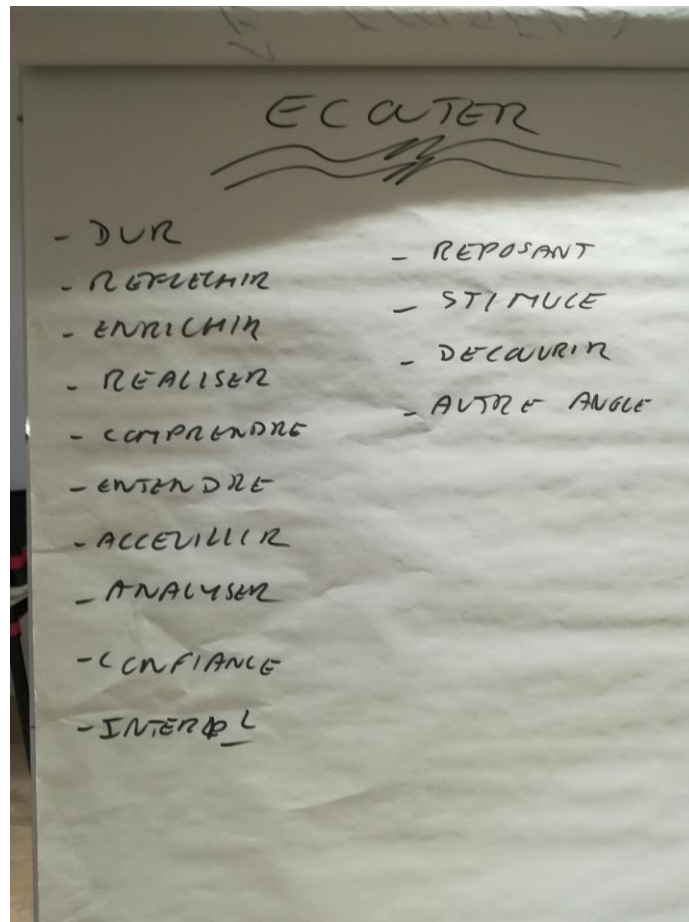 ECOUTER
- DUR
- REFLECHIR
- ENRICHIR
- REALISER
- COMPRENDRE
- ENTENDRE
- ACCEUILLIR
- ANALYSER
- CONFIANCE
- REPOSANT
- STIMULE
- DECOUVRIR
- AUTRE ANGLE